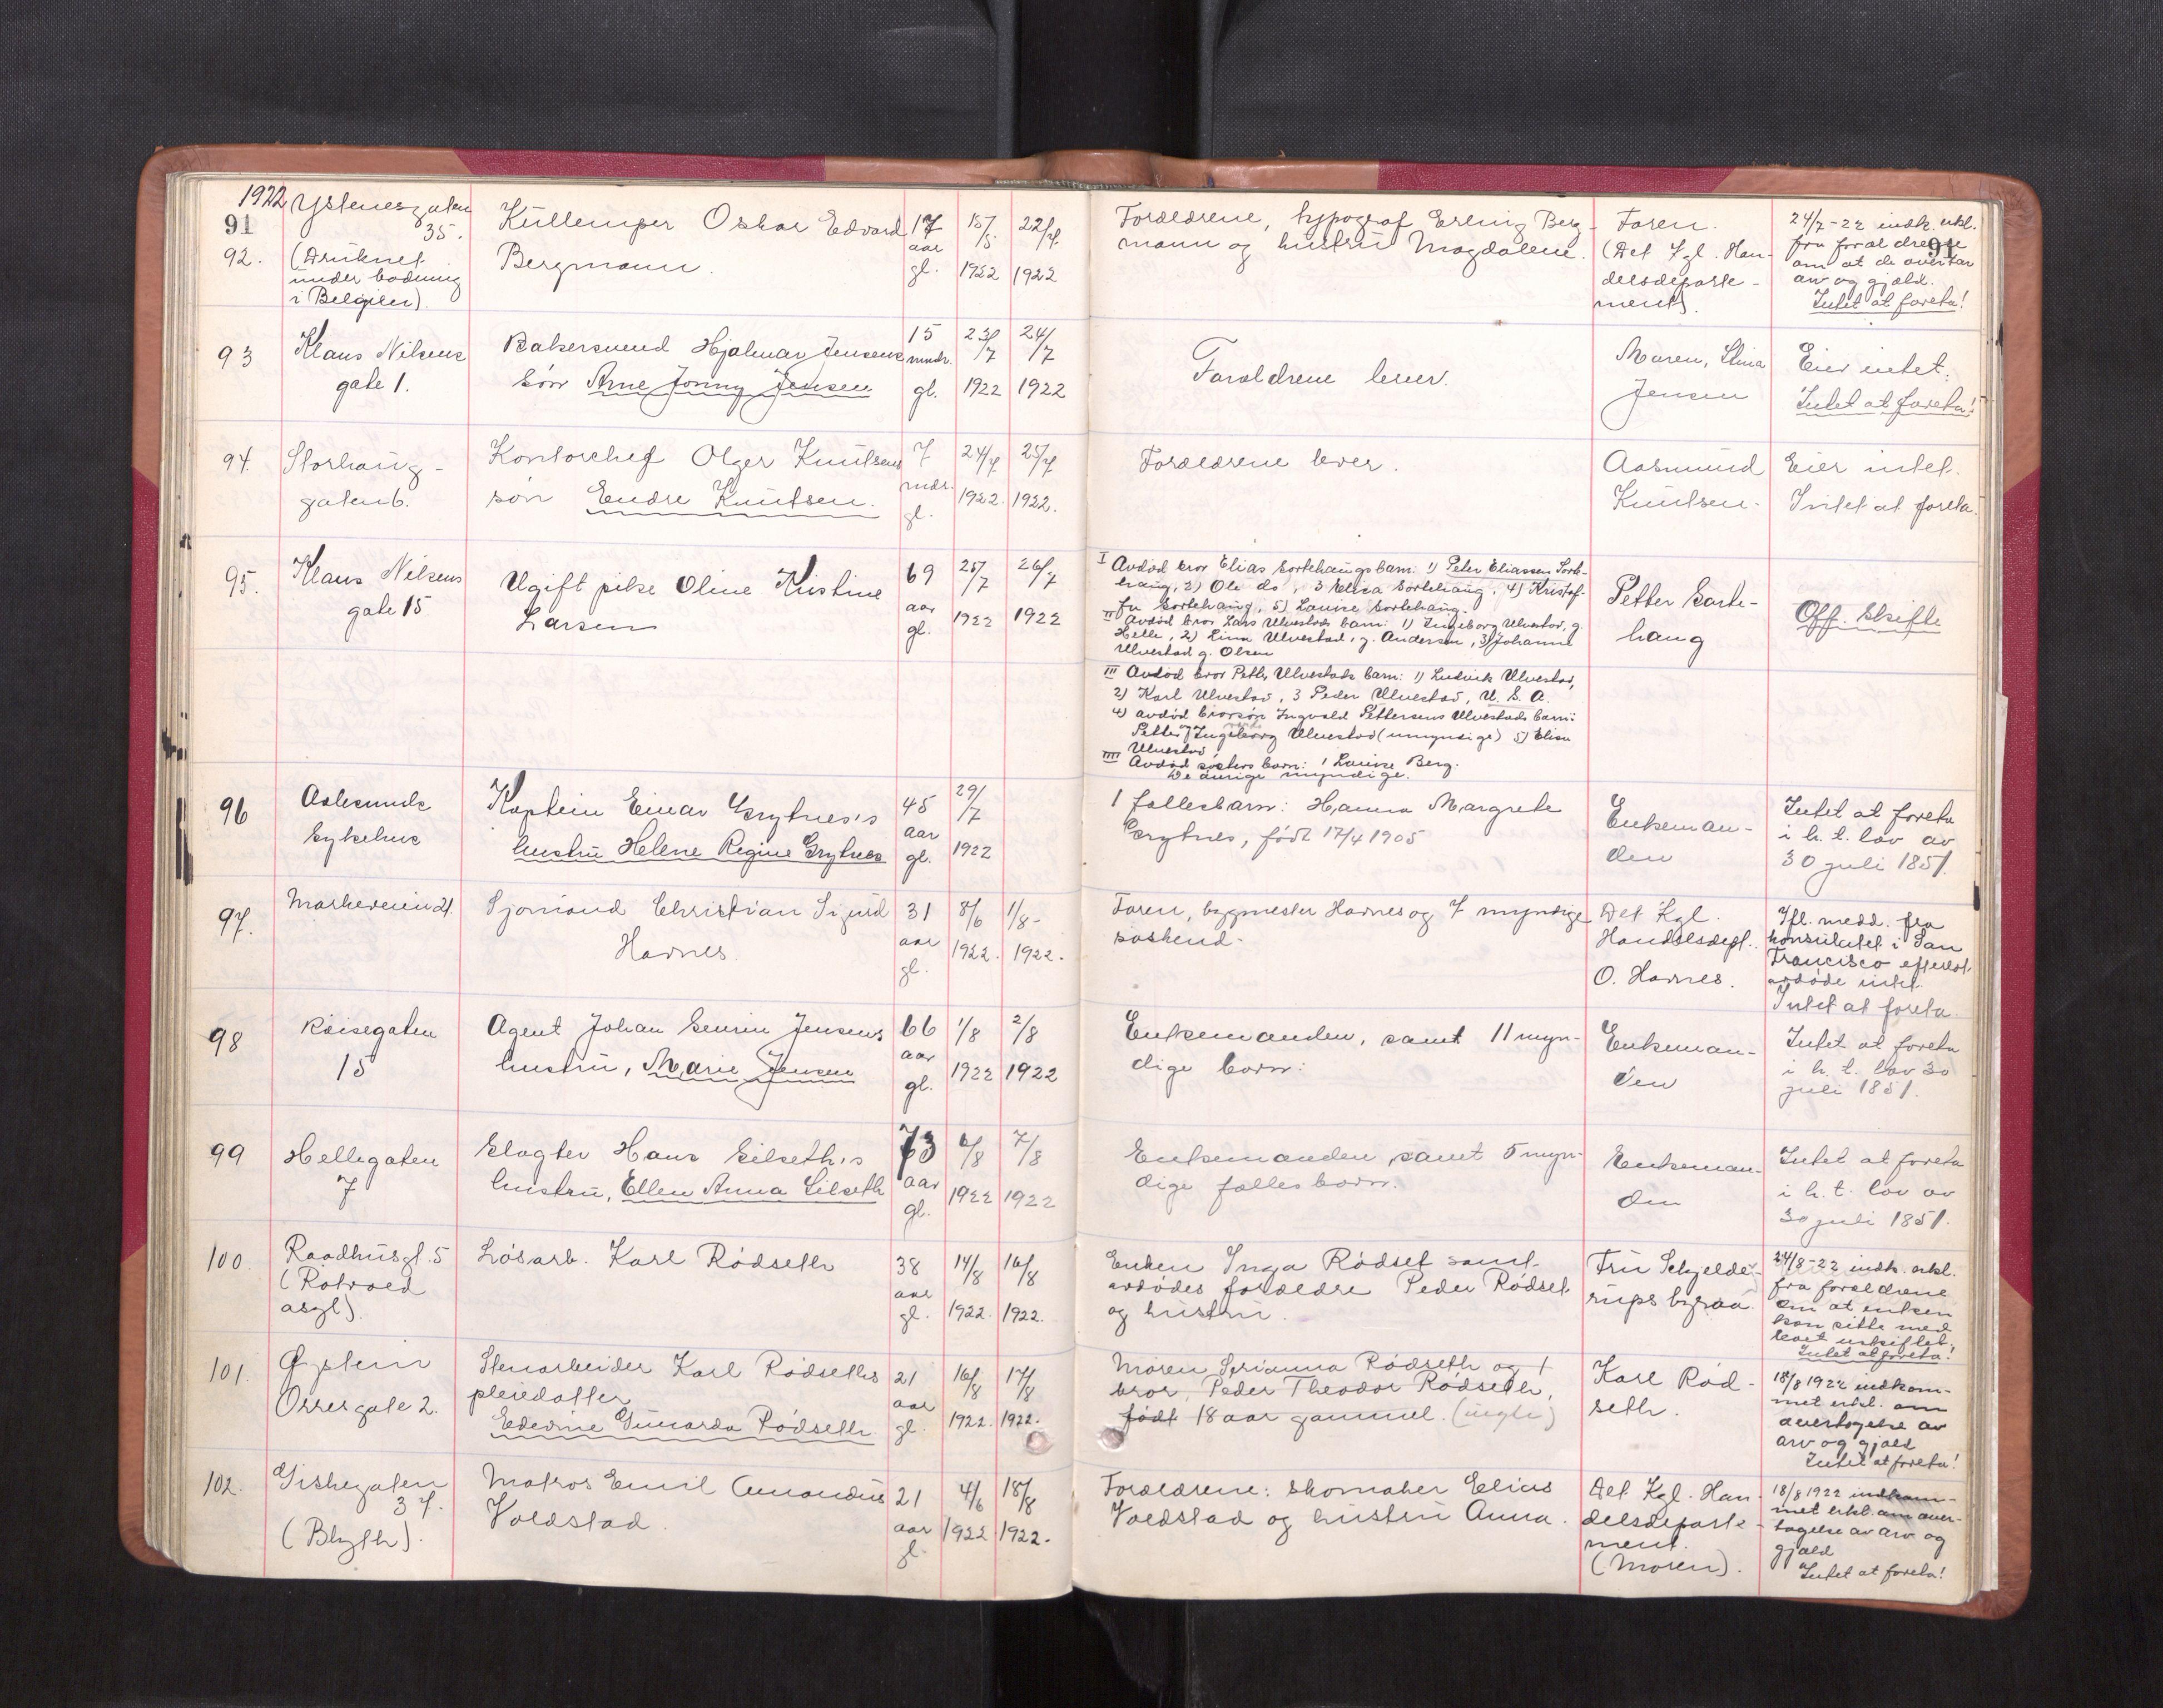 1922
91
92.
Ystenesgaten
35.
(Druknet
under badning
i Belgien).
Kullemper Oskar Edvard
Bergmann.
17
aar
gl.
15/5
1922
22/7
1922
Forældrene, typograf Erling Berg-
mann og hustru Magdalene.
Faren.
(Det Kgl. Han-
delsdeparte-
ment).
91
24/7-22 indk. erkl.
fra forældrene
om at de overtar
arv og gjæld.
Intet at foreta!
93
Klaus Nilsens
gate 1.
Bakersvend Hjalmar Jensens
søn Arne Jonny Jensen
15
mndr.
gl.
23/7
1922
24/7
1922
Forældrene lever.
Maren, Stina
Jensen
Eier intet.
Intet at foreta!
94.
Storhaug-
gaten 6.
Kontorchef Olger Knutsens
søn Endre Knutsen.
7
mdr.
gl.
24/7
1922.
25/7
1922.
Forældrene lever.
Aasmund
Knutsen.
Eier intet.
Intet at foreta.
95.
Klaus Nilsens
gate 15
Ugift pike Oline Kristine
Larsen
69
aar
gl.
25/7
1922
26/7
1922
I Avdød bror Elias Sortehaugs barn: 1) Peter Eliassen Sorte-
haug, 2) Ole do, 3 Elisa Sortehaug, 4) Kristof-
fa Sortehaug, 5) Laurse Sortehaug.
II Avdød bror Lars Ulvestads barn: 1) Ingeborg Ulvestad, g.
Helle, 2) Lina Ulvestad, g. Andersen, 3) Johanne
Ulvestad g. Olsen
III Avdød bror Petter Ulvestads barn: 1) Ludvik Ulvestad,
2) Karl Ulvestad, 3 Peder Ulvestad, U. S. A.
4) avdød brorsøn Ingvald Pettersens Ulvestads barn:
Petter og Ingeborg Ulvestad (umyndige) 5) Elisa
Ulvestad
IIII Avdød søsters barn: 1 Laurse Berg.
De øvrige myndige.
Petter Sorte-
haug
Off. skifte
96
Aalesunds
sykehus
Kaptein Einar Grytnes's
hustru Helene Regine Grytnes
45
aar
gl.
29/7
1922
1 fællesbarn: Hanna Margrete
Grytnes, født 17/4 1905
Enkeman-
den
Intet at foreta
i h. t. lov av
30 juli 1851.
97.
Markeveien 21.
Sjømand Christian Sigurd
Havnes.
31
aar
gl.
8/6
1922.
1/8-
1922.
Faren, bygmester Havnes og 7 myndige
søskend-
Det Kgl.
Handelsdept.
O. Havnes.
Ifl. medd. fra
konsulatet i San
Francisco efterlot
avdøde intet.
Intet at foreta.
98
Røisegaten
15
Agent Johan Severin Jensens
hustru, Marie Jensen
66
aar
gl.
1/8
1922
2/8
1922
Enkemanden, samt 11 myn-
dige barn:
Enkeman-
den
Intet at foreta
i h. t. lov 30
juli 1851.
99
Hellegaten
7
Slagter Hans Silseth's
hustru, Ellen Anna Silseth
73
aar
gl.
6/8
1922
7/8
1922
Enkemanden, samt 5 myn-
dige fællesbarn.
Enkeman-
den
Intet at foreta
i h. t. lov av
30 juli 1851.
100.
Raadhusgt. 5
(Rotvold
asyl).
Løsarb. Karl Rødseth
38
aar
gl.
14/8
1922.
16/8
1922.
Enken Inga Rødset samt
avdødes forældre Peder Rødset
og hustru.
Fru Schjelde-
rups byraa.
24/8-22 indk. erkl.
fra forældrene
om at enken
kan sitte med
boet uskiftet.
Intet at foreta!
101.
Øystein
Orresgate 2.
Stenarbeider Karl Rødseths
pleiedatter
Edevine Gunarda Rødseth
21
aar
gl.
16/8
1922.
17/8
1922.
Moren Serianna Rødseth og 1
bror, Peder Theodor Rødseth,
født 18 aar gammel. (ugle)
Karl Rød-
seth.
18/8 1922 indkom-
met erkl. om
overtagelse av
arv og gjæld
Intet at foreta!
102.
Giskegaten
37.
(Blyth).
Matros Emil Amandus
Voldstad.
21
aar
gl.
4/6
1922
18/8
1922.
Forældrene: skomaker Elias
Voldstad og hustru Anna.
Det Kgl. Han-
delsdeparte-
ment.
(Moren).
18/8 1922 indkom-
met erkl. om over-
tagelse av arv og
gjæld
Intet at foreta!